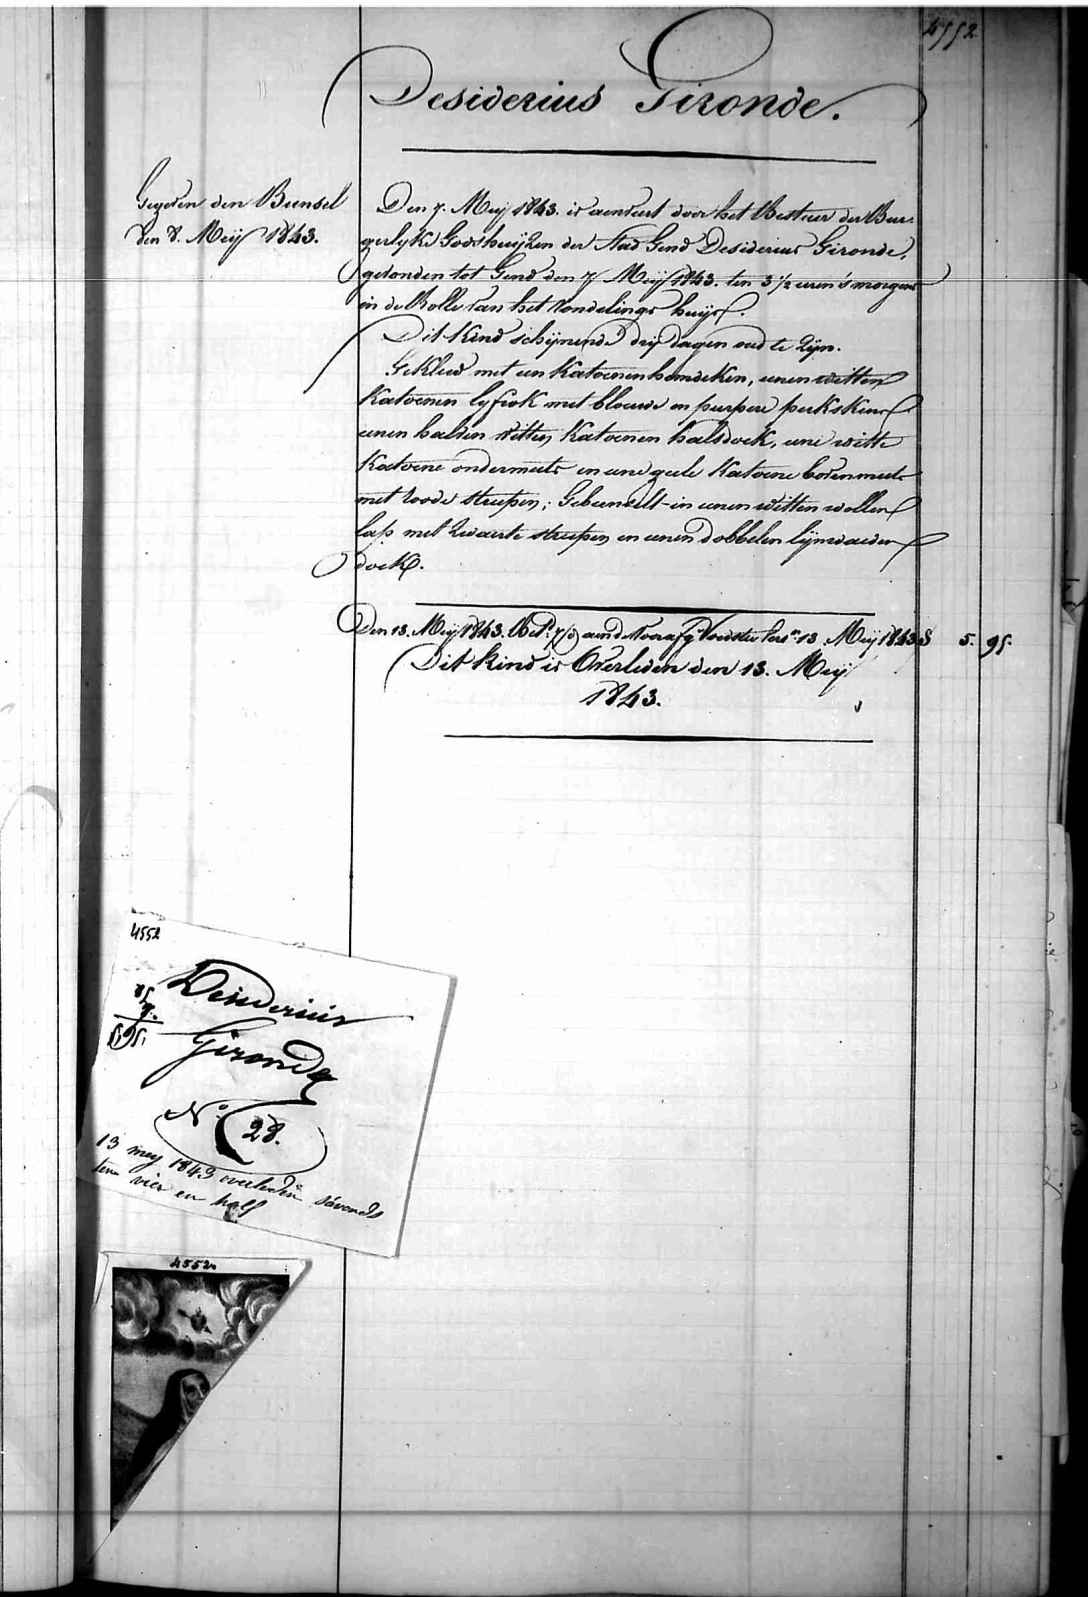 4552
Desiderius Gironde.
Gegeven den Bunsel
den 8. Meij 1843.
Den 7. Meij 1843. is aenveert door het Bestuer der Bur-
gerlyke Godshuijzen der Stad Gend Desiderius Gironde,
gevonden tot Gend den 7 Meij 1843. ten 3 1/2 uren 's morgens
in de Rolle van het Vondelings huijs.
Dit Kind schijnende drij dagen oud te Zijn.
Gekleed met een Katoenen hemdeken, eenen witten
Katoenen lyfrok met blauwe en purpere perkskens
eenen halven witten Katoenen halsdoek, eene witte
Katoene ondermuts en eene geele Katoene bovenmuts
met roode streepen; Gebunselt in eenen witten wollen
lap met Zwarte streepen en eenen dobbelen lijnwaeden
doek.
Den 13. Meij 1843. Bet. aend voedster 13. Meij 1843 5. 95.
Dit kind is Overleden den 13. Meij
1843.
4552
Desiderius
Gironde
N° 28.
13 mey 1843 overleden s'avonds
ten vier en half
4552